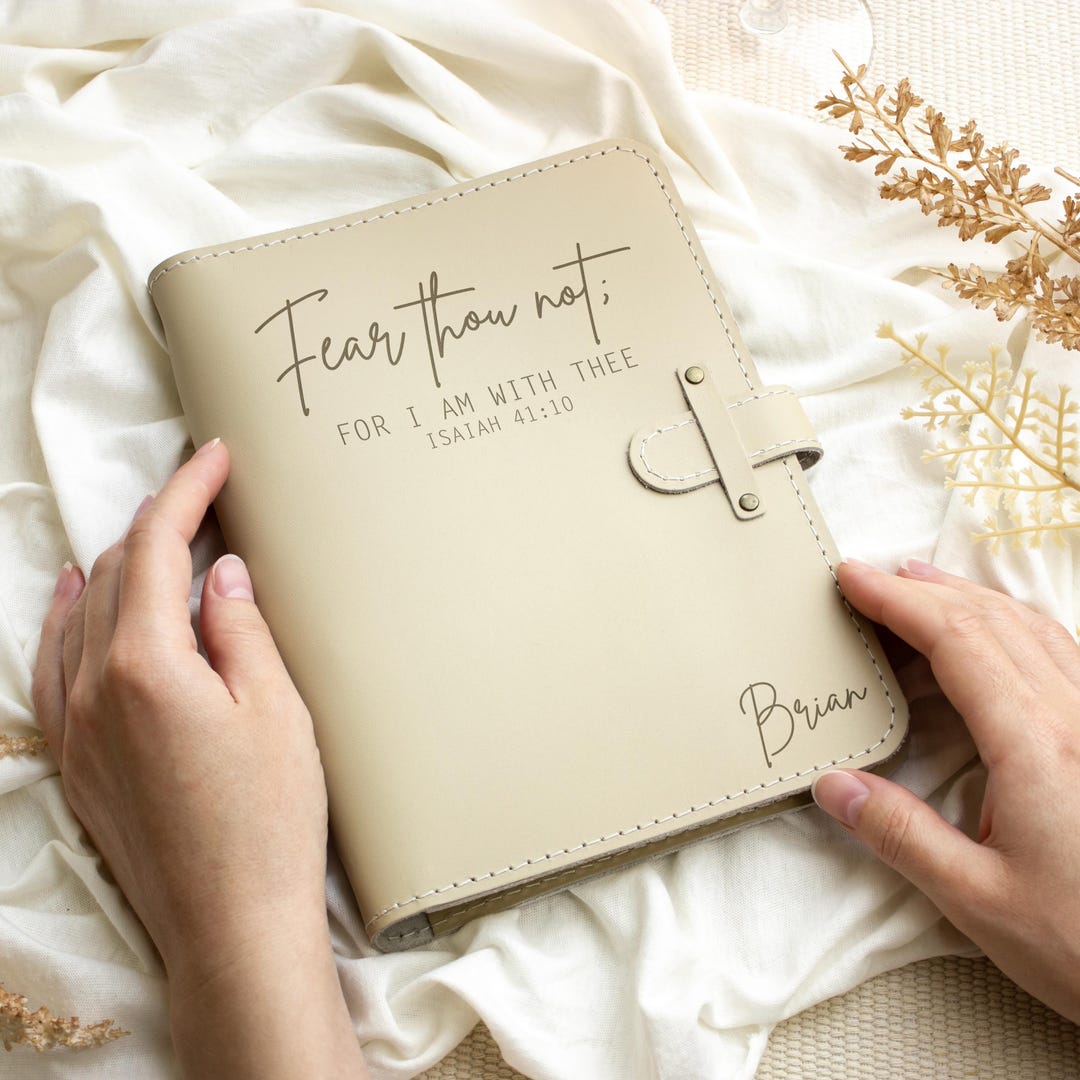 Fear thou not;
FOR I AM WITH THEE
ISAIAH 41:10
Brian